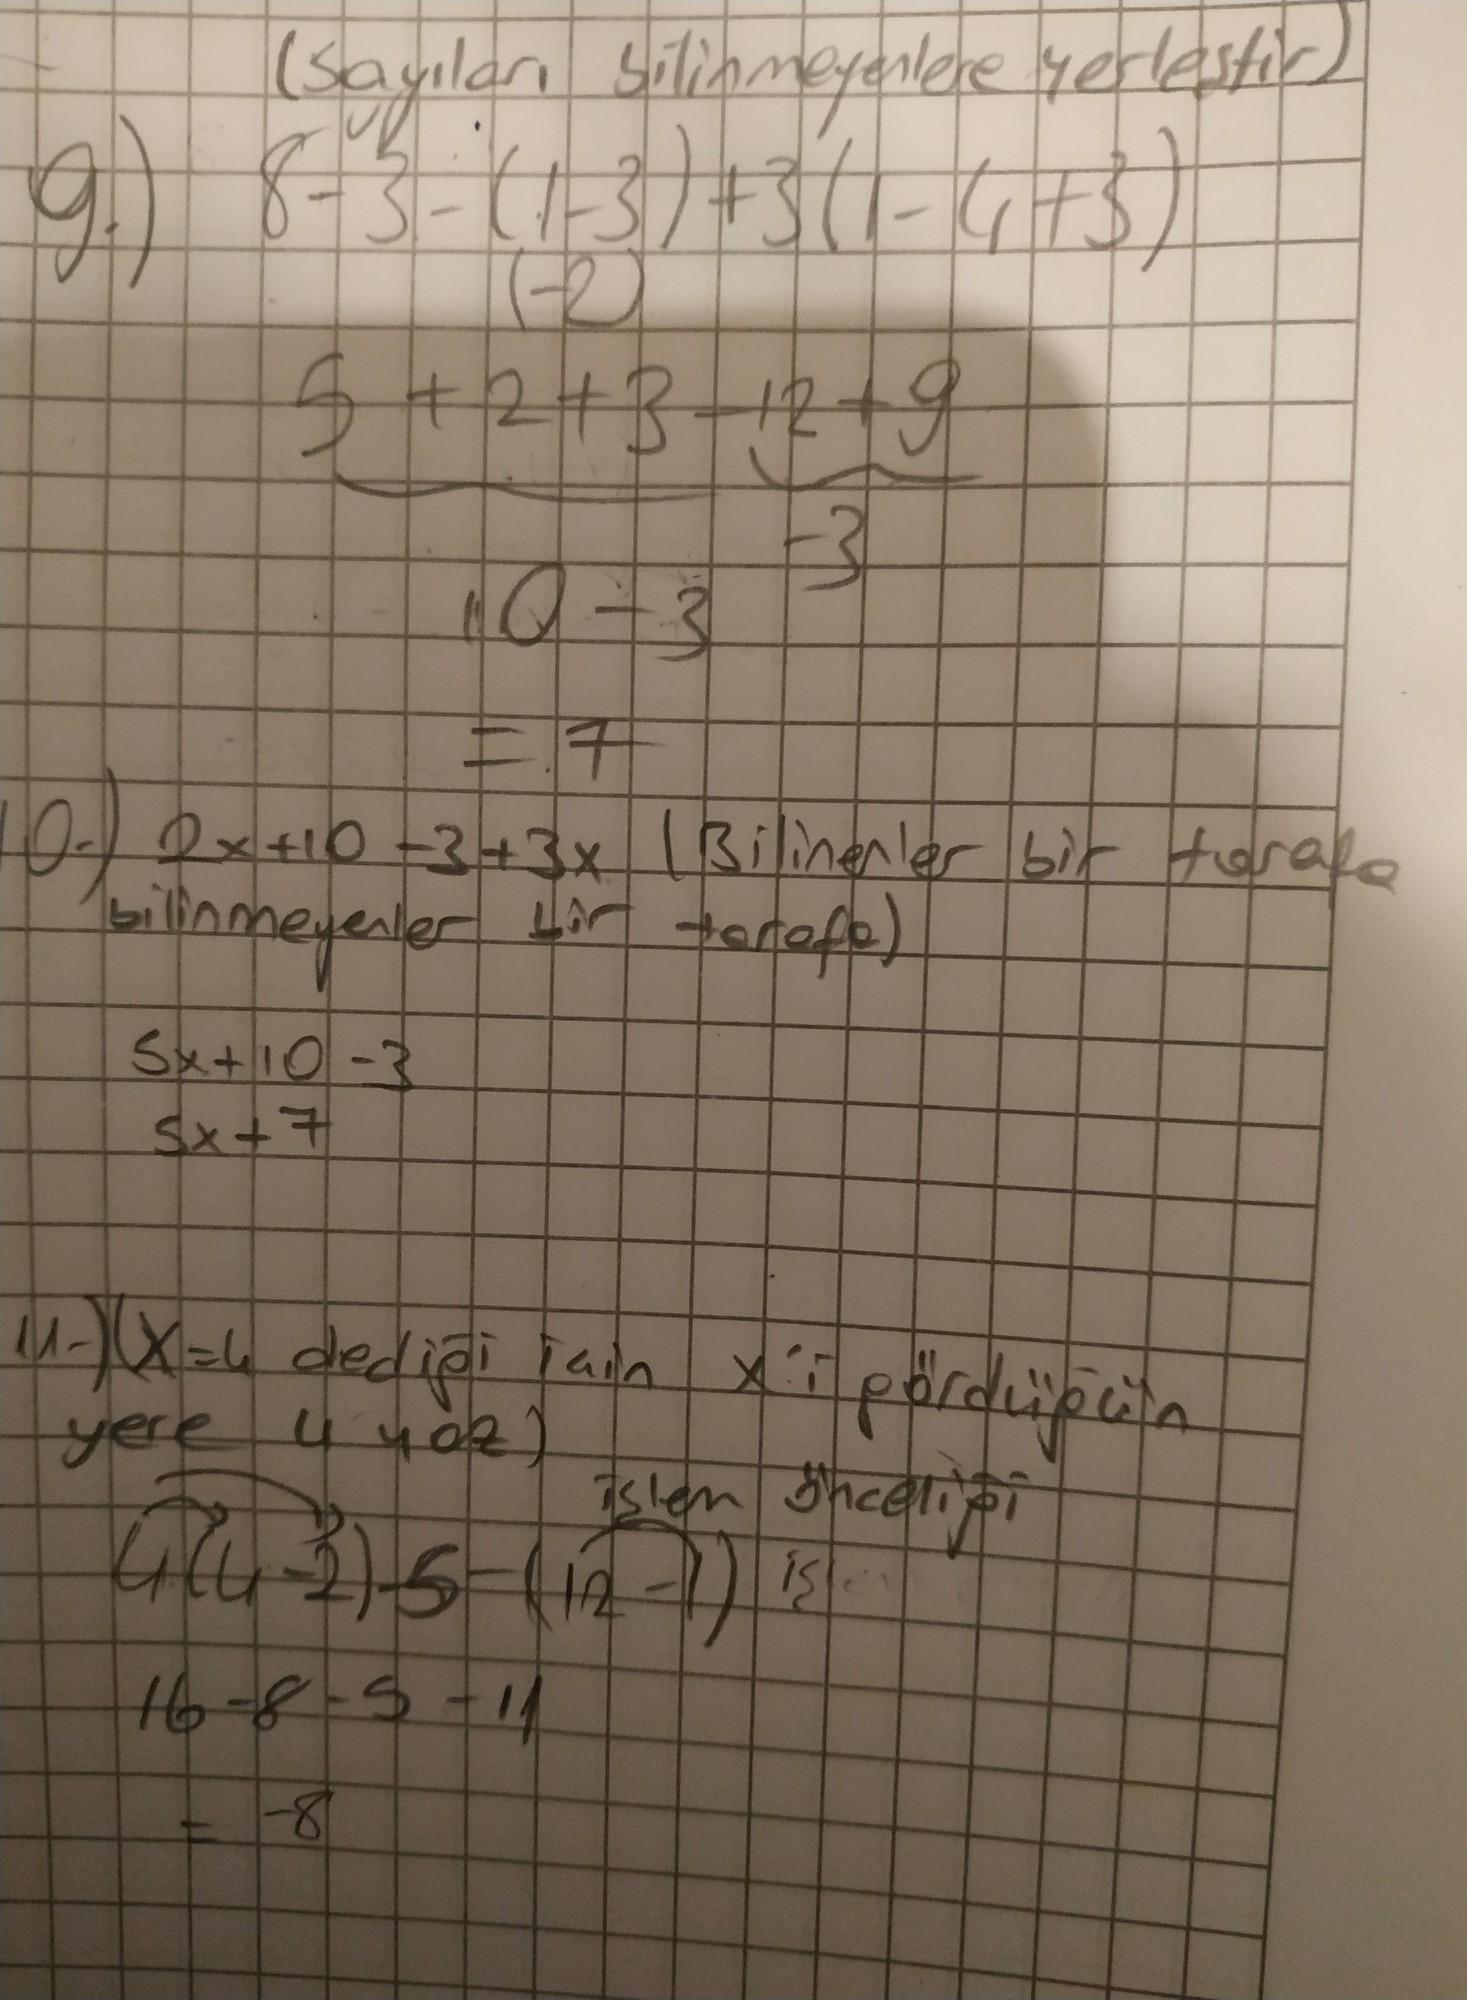 (Sayıları bilinmeyenlere yerleştir)
9.) 8-3-(1-3)+3(1-4+3)
(-2)
5+2+3-12+9
-3
10-3
=7
10-) 2x+10-3+3x (Bilinenler bir tarafa
bilinmeyenler bir tarafa)
5x+10-3
5x+7
11-) (x=4 dediği için x'i gördüğün
yere 4 yaz)
işlem önceliği
4(4-2)-5-(12-1) iş
16-8-5-11
= -8